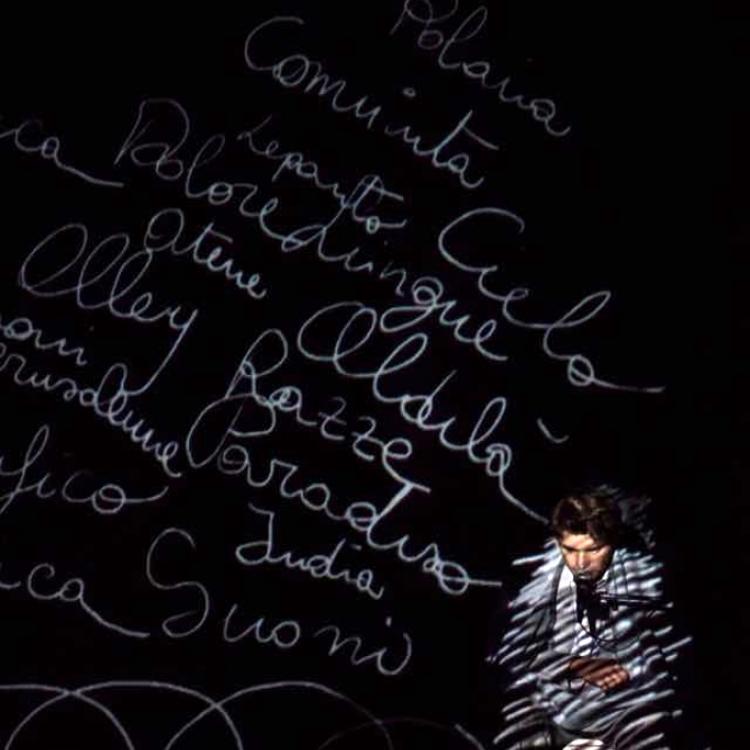 Comunita
Lepanto
Dolore
Lingue
Cielo
Atene
Alley
Aldilà
Razze
erusalemme
Paradiso
fico
India
ca
Suoni